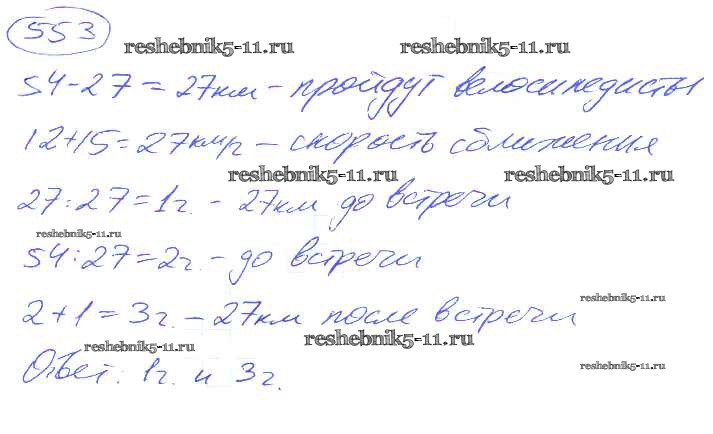 553
reshebnik5-11.ru reshebnik5-11.ru
54-27=27км - пройдут велосипедисты
12+15=27км/г - скорость сближения
reshebnik5-11.ru reshebnik5-11.ru
27:27=1г. - 27км до встречи
reshebnik5-11.ru
54:27=2г. - до встречи
reshebnik5-11.ru
2+1=3г. - 27км после встречи
reshebnik5-11.ru reshebnik5-11.ru
Ответ: 1г. и 3г.
reshebnik5-11.ru